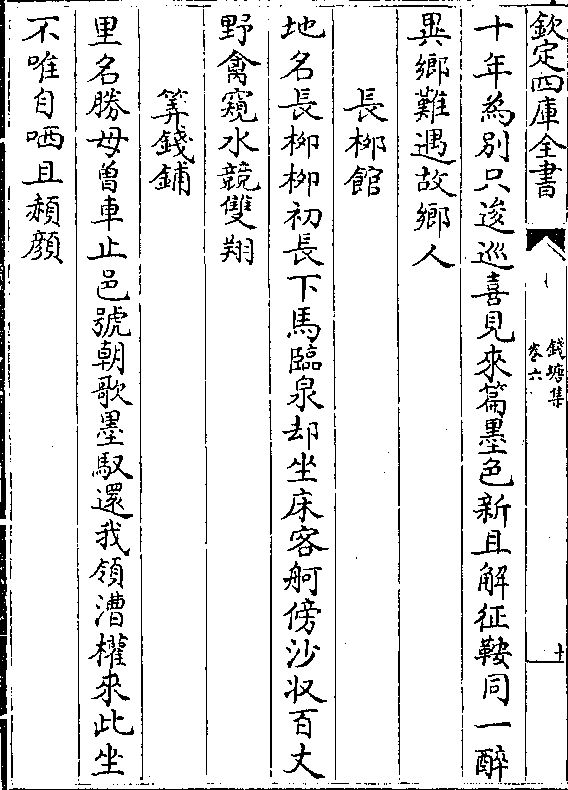 欽定四庫全書
錢塘集
卷六
十
十年為別只逡巡喜見來篇墨色新且解征鞍同一醉
異鄉難遇故鄉人
長栁館
地名長栁栁初長下馬臨泉却坐床客舸傍沙収百丈
野禽窺水競雙翔
筭錢鋪
里名勝母曽車止邑號朝歌墨馭還我領漕權來此坐
不唯自哂且赬顔